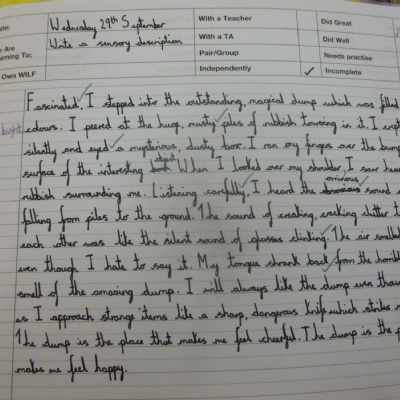 ate: Wednesday 29th September With a Teacher Did Great
e Are With a TA Did Well
arning To: Write a sensory description Pair/Group Needs practise
Own WILF Independently ✓ Incomplete
Fascinated, I stepped into the outstanding, magical dump which was filled
bright colours. I peered at the huge, musty piles of rubbish towering in it. I crept
silently and eyed a mysterious, dusty box. I ran my fingers over the bump
surface of the interesting object When I looked over my shoulder I saw hea
rubbish surrounding me. Listening carefully, I heard the ominous sound
falling from piles to the ground. The sound of creaking, cracking clutter t
each other was like the silent sound of glasses clinking. The air smelled
even though I hate to say it. My tongue shrank back from the horrib
smell of the amazing dump. I will always like the dump even thoug
as I approach strange items like a sharp, dangerous knife which strikes
The dump is the place that makes me feel cheerful. The dump is the p
makes me feel happy.